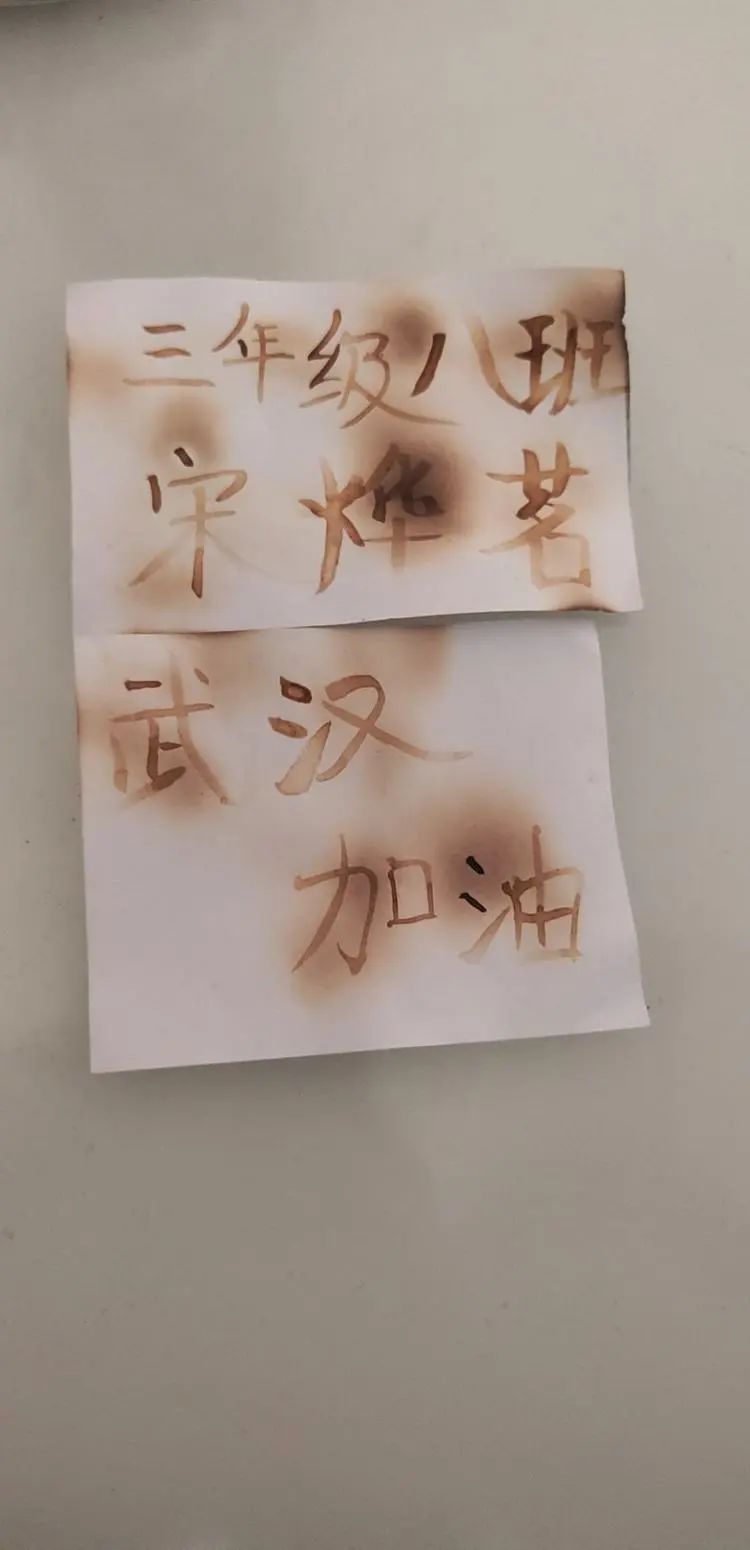 三年级八班
宋烨茗
武汉
加油